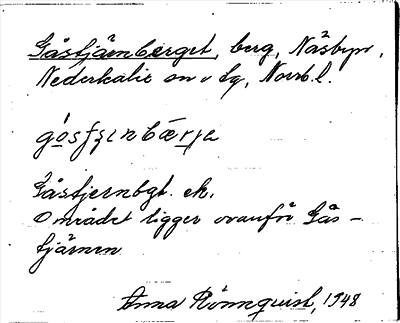 Gåstjärnberget, berg, Näsbyn,
Nederkalix sn o lg, Norrb.l.
gåsfʒɛnbærjə
Gåstjernbgt. ek.
Området ligger ovanför Gås-
tjärnen
Anna Rönnquist, 1948